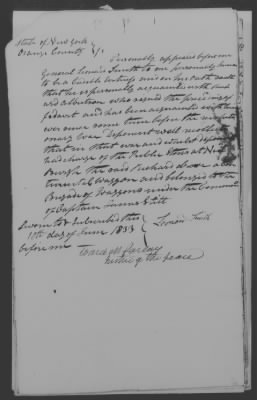 State of New York
Orange County } ss
Personally appeared before me
General Leonard Smith to me personally known
to be a credible witness and on his oath saith
that he is personally acquainted with
who signed the foregoing
affidavit and has been acquainted with him
ever since some time before the revolutio
onary war Deponent well recollects
that in that war and whilst deponent
had charge of the Public Stores at New
Burgh the said Richard drove a Con
tinental Waggon and belonged to the
Brigade of Waggons under the Command
of Captain James Still
Sworn & Subscribed this
11th day of June 1833
before me
Leonard Smith
Justice of the peace